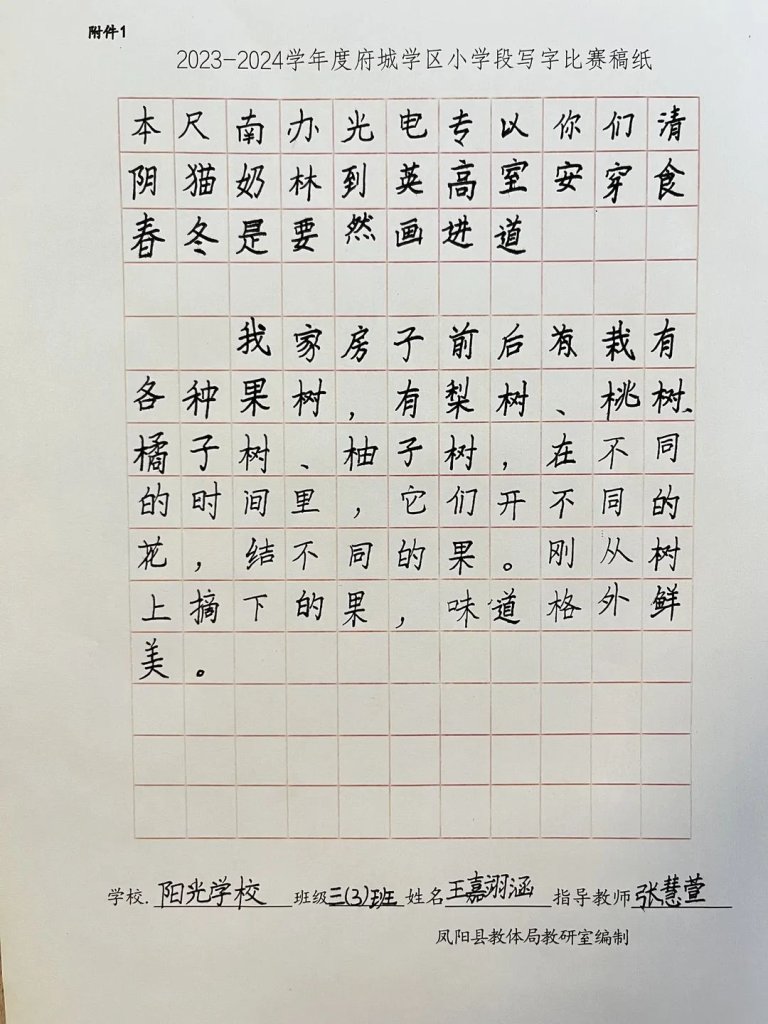 附件1
2023-2024学年度府城学区小学段写字比赛稿纸
本尺南办光电专以你们清
阴猫奶林到英高室安穿食
春冬是要然画进道
我家房子前后栽有
各种果树，有梨树、桃树、
橘子树、柚子树，在不同
的时间里，它们开不同的
花，结不同的果。刚从树
上摘下的果，味道格外鲜
美。
学校.阳光学校 班级三(3)班 姓名王嘉翊涵 指导教师张慧萱
凤阳县教体局教研室编制